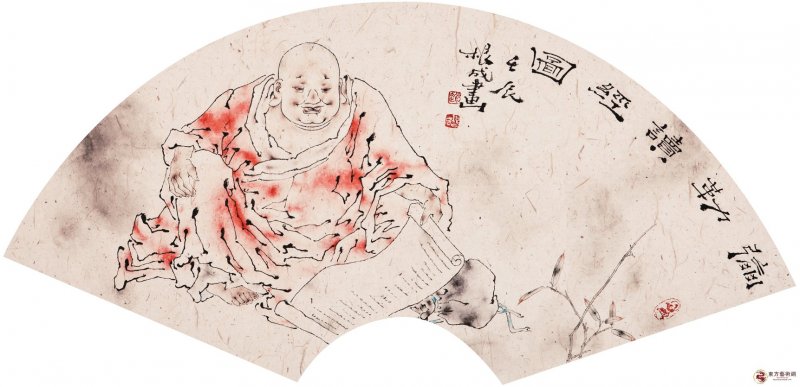 彌勒讀經圖
壬辰
根成畫
東方藝術網